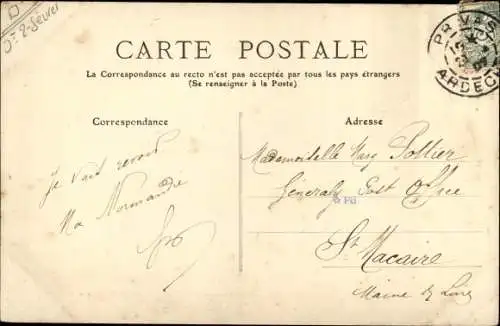 Dr 2-Sèvres
PRIVAS
ARDECHE
CARTE POSTALE
La Correspondance au recto n'est pas acceptée par tous les pays étrangers
(Se renseigner à la Poste)
Correspondance
Adresse
Je veux revoir
Ma Normandie
Mademoiselle Mary Pottier
Generaly Post Office
PG
St Macaire
Maine & Loire